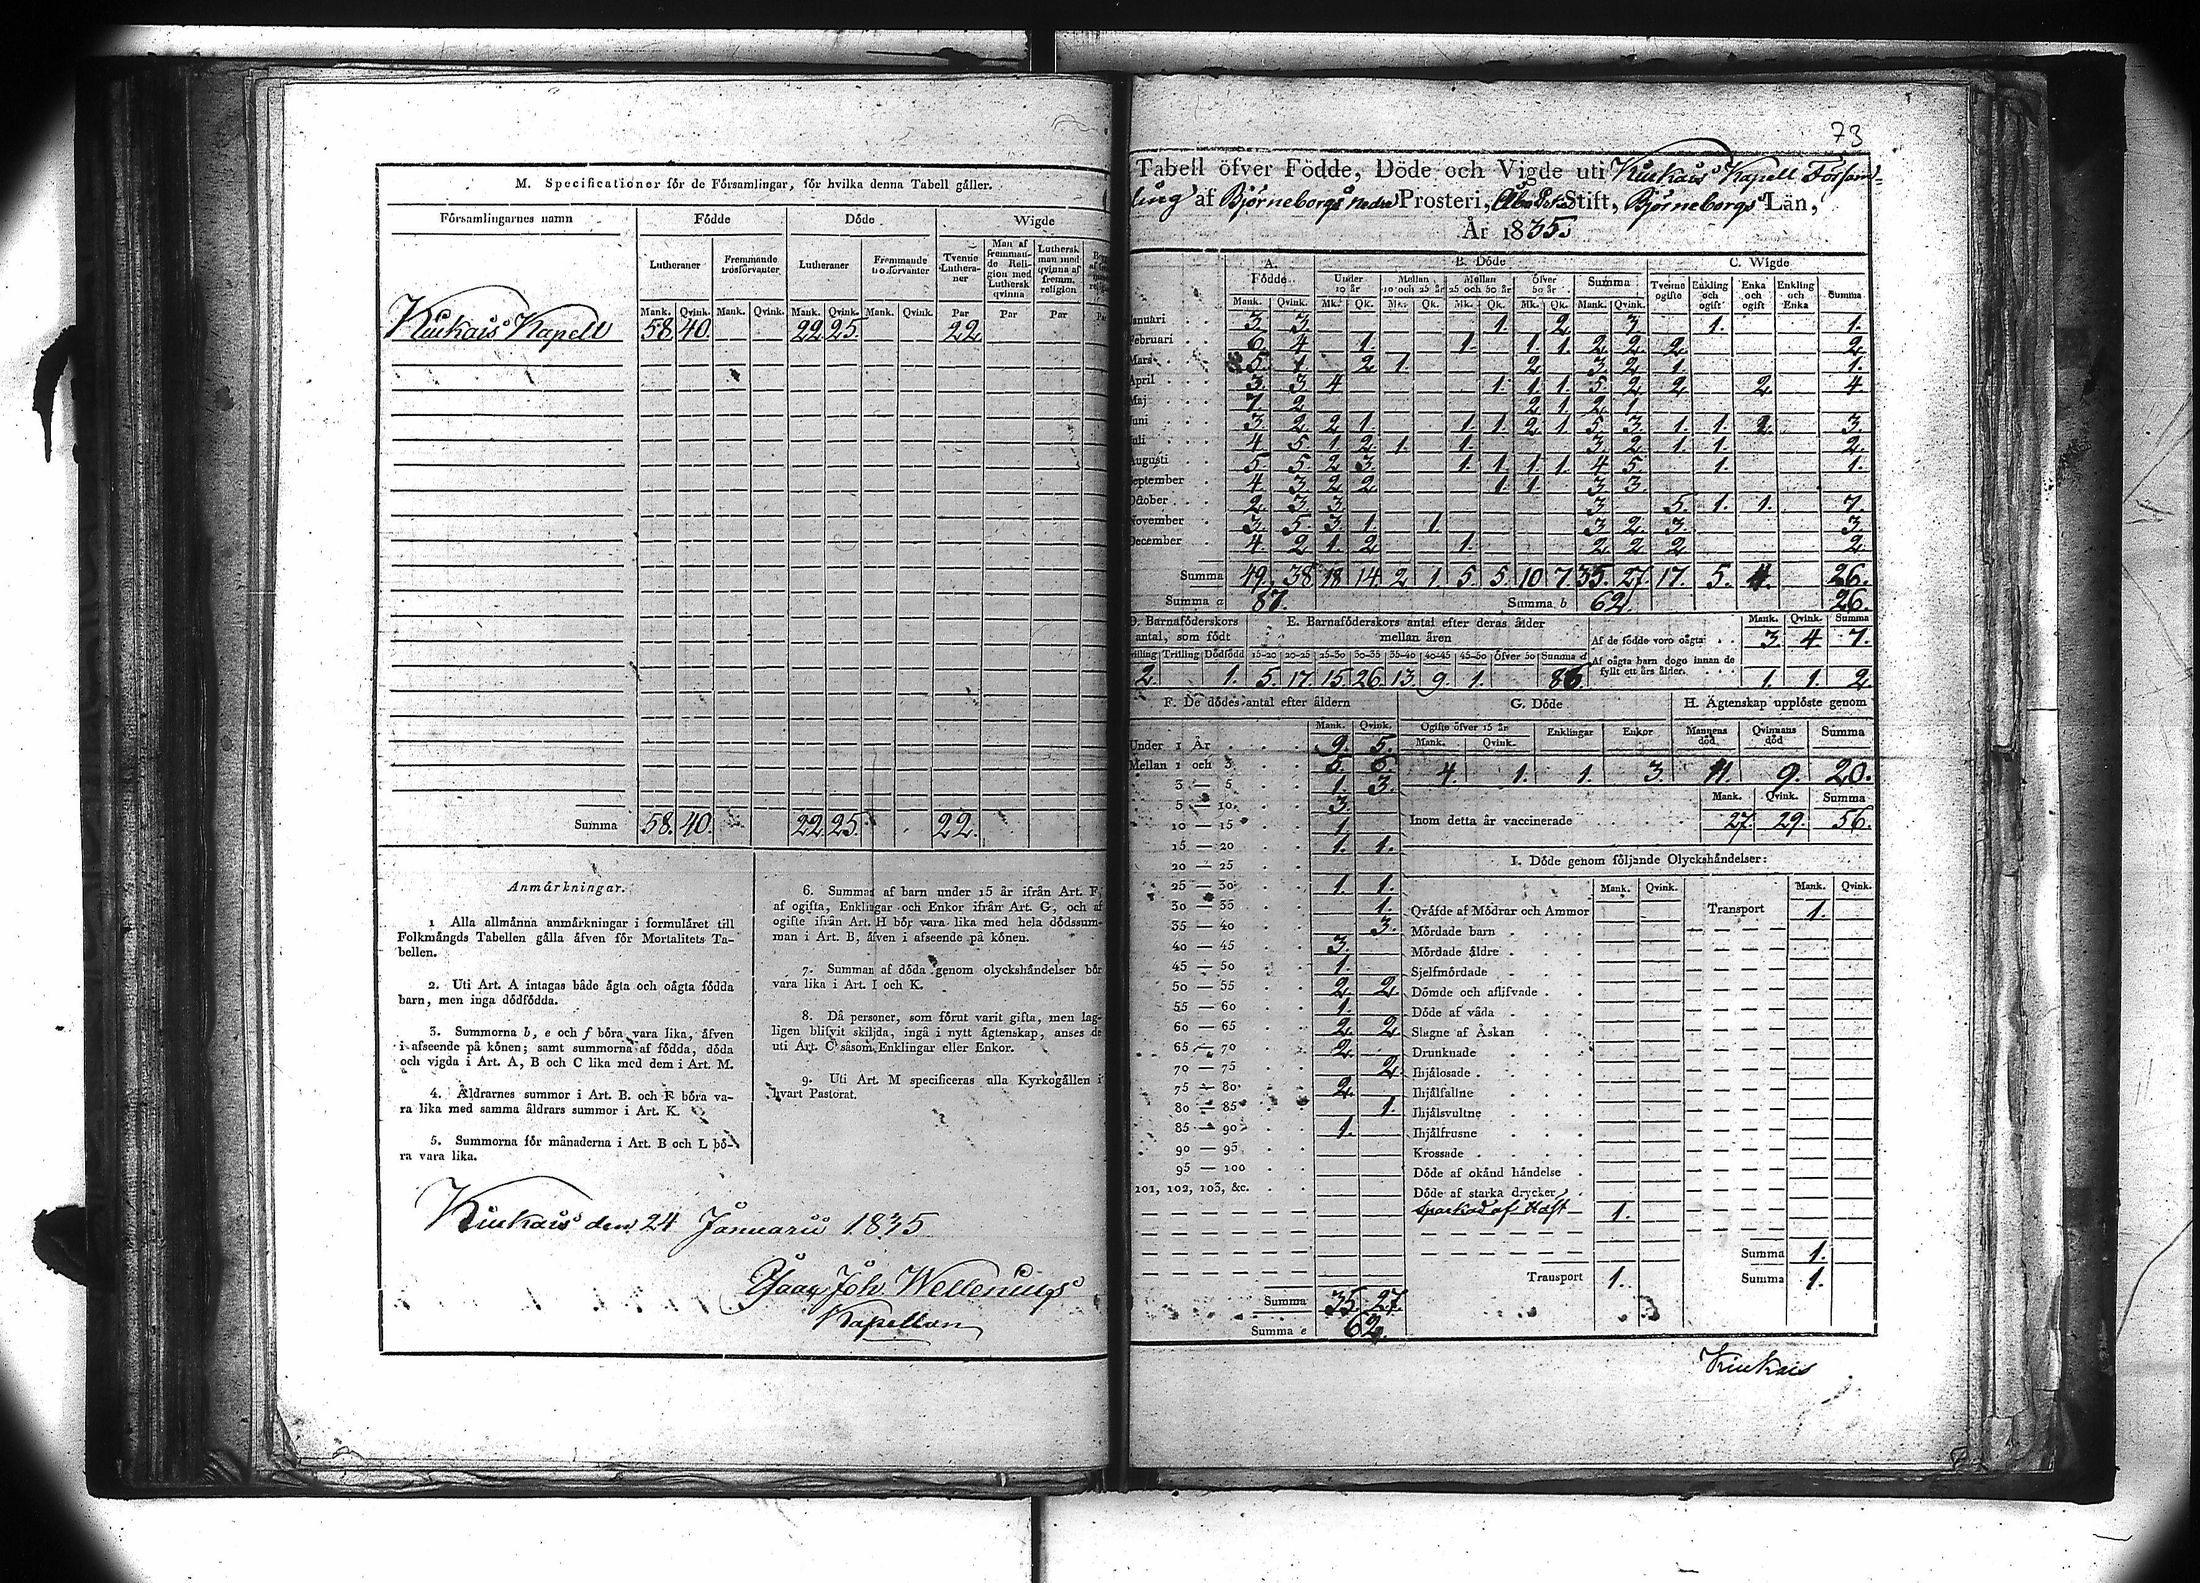 M. Specificationer för de Församlingar, för hvilka denna Tabell gäller.
Församlingarnes namn | Födde | Döde | Wigde
Lutheraner | Fremmande trosförvanter | Lutheraner | Fremmande trosförvanter | Tvenne Lutheraner | Man af fremmande Religion med Luthersk qvinna | Luthersk man med qvinna af fremm. religion
Mank. Qvink. Mank. Qvink. Mank. Qvink. Mank. Qvink. Par Par Par
Kiukais Kapell 58. 40. 22 25. 22.
Summa 58. 40. 22 25. 22.
Anmärkningar.
1 Alla allmänna anmärkningar i formuläret till
Folkmängds Tabellen gälla äfven för Mortalitets Ta-
bellen.
2. Uti Art. A intagas både ägta och oägta födda
barn, men inga dödfödda.
3. Summorna b, e och f böra vara lika, äfven
i afseende på könen; samt summorna af födda, döda
och vigda i Art. A, B och C lika med dem i Art. M.
4. Äldrarnes summor i Art. B. och F böra va-
ra lika med samma äldrars summor i Art. K.
5. Summorna för månaderna i Art. B och L bö-
ra vara lika.
6. Summan af barn under 15 år ifrån Art. F,
af ogifta, Enklingar och Enkor ifrån Art. G, och af
ogifte ifrån Art. H bör vara lika med hela dödssum-
man i Art. B, äfven i afseende på könen.
7. Summan af döda genom olyckshändelser bör
vara lika i Art. I och K.
8. Då personer, som förut varit gifta, men lag-
ligen blifvit skiljda, ingå i nytt ägtenskap, anses de
uti Art. C såsom Enklingar eller Enkor.
9. Uti Art. M specificeras alla Kyrkogällen i
hvart Pastorat.
Kiukais den 24 Januarii 1835
Joh. Wellenius
Kapellan
73
Tabell öfver Födde, Döde och Vigde uti Kiukais Kapell Försam-
ling af Björneborgs nedre Prosteri, Åbo Stift, Björneborgs Län,
År 1835.
A. Födde | B. Döde | C. Wigde
Under 10 år | Mellan 10 och 25 år | Mellan 25 och 50 år | Öfver 50 år | Summa | Tvenne ogifte | Enkling och ogift | Enka och ogift | Enkling och Enka | Summa
Mank. Qvink. Mk. Qk. Mk. Qk. Mk. Qk. Mk. Qk. Mank. Qvink.
Januari 3 3 1. 2 3. 1. 1.
Februari 6 4 1. 1. 1. 1. 2 2 2 2
Mars 5 1. 2 1. 2 3 2 1. 1.
April 3 3 4 1. 1. 1. 5 2 2 2 4
Maj 7 2 2 1. 2 1.
Juni 3 2 2 1. 1. 1. 2 1. 5 3 1. 1. 2 3
Juli 4 5 1. 2 1. 1. 3 2 1. 1. 2
Augusti 5. 5 2 3 1. 1. 1. 1. 4 5. 1. 1.
September 4 3 2 2 1. 1. 3 3
October 2 3 3 3 5 1. 1. 7
November 3 5. 3 1. 1. 3 2 3 3
December 4. 2 1. 2 1. 2 2 2 2
Summa 49. 38 18 14 2 1. 5 5 10 7 35. 27 17. 5. 4. 26.
Summa a 87. Summa b 62. 26.
D. Barnaföderskors antal, som födt | E. Barnaföderskors antal efter deras ålder mellan åren
Mank. Qvink. Summa
Af de födde voro oägta 3. 4 7.
Tvilling Trilling Dödfödd 15-20 20-25 25-30 30-35 35-40 40-45 45-50 Öfver 50 Summa d
Af oägta barn dogo innan de
fyllt ett års ålder. 1. 1. 2
2. 1. 5. 17. 15. 26. 13. 9. 1. 86.
F. De dödes antal efter åldern | G. Döde | H. Ägtenskap upplöste genom
Mank. Qvink. | Ogifte öfver 15 år Mank. Qvink. | Enklingar | Enkor | Mannens död | Qvinnans död | Summa
4. 1. 1. 3. 11. 9. 20.
Mank. Qvink. Summa
Inom detta år vaccinerade 27. 29. 56.
Under 1 År 9. 5.
Mellan 1 och 3 5. 6
3 — 5 1. 3.
5 — 10 3.
10 — 15 1.
15 — 20 1. 1.
20 — 25
25 — 30 1. 1.
30 — 35 1.
35 — 40 3.
40 — 45 3.
45 — 50 1.
50 — 55 2 2
55 — 60 1.
60 — 65 2 2
65 — 70 2
70 — 75 2
75 — 80 2.
80 — 85 1.
85 — 90 1.
90 — 95
95 — 100
101, 102, 103, &c.
Summa 35 27.
Summa e 62.
I. Döde genom följande Olyckshändelser:
Mank. Qvink. Mank. Qvink.
Qväfde af Mödrar och Ammor Transport 1.
Mördade barn
Mördade äldre
Sjelfmördade
Dömde och aflifvade
Döde af våda
Slagne af Åskan
Drunknade
Ihjälosade
Ihjälfallne
Ihjälsvultne
Ihjälfrusne
Krossade
Döde af okänd händelse
Döde af starka drycker
Sparkad af Häst 1.
Summa 1.
Transport 1. Summa 1.
Kiukais